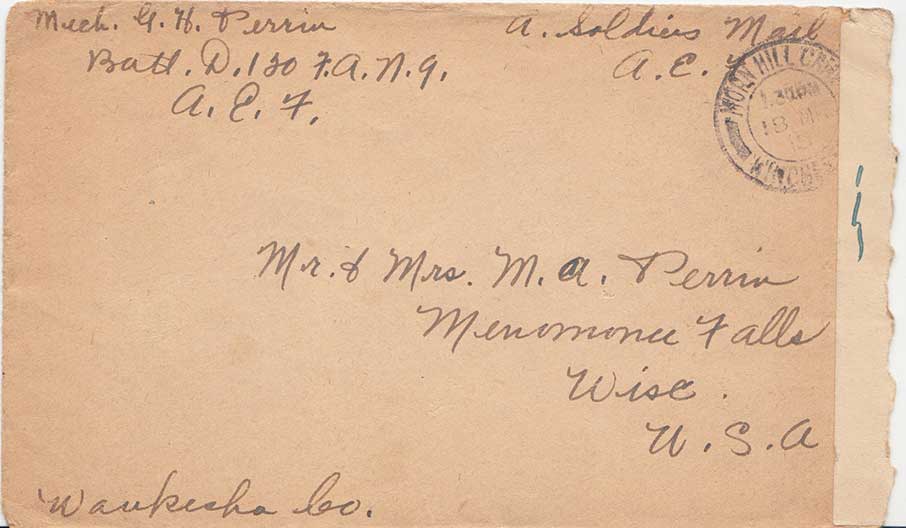 Mech. G. H. Perrin
Batt. D. 120 F.A. N.G.
A. E. F.
A. Soldiers Mail
A. E. F
MORN HILL CAMP
1.30PM
18 MR
18
WINCHE
Mr. & Mrs. M. A. Perrin
Menomonee Falls
Wisc.
U. S. A
Waukesha Co.